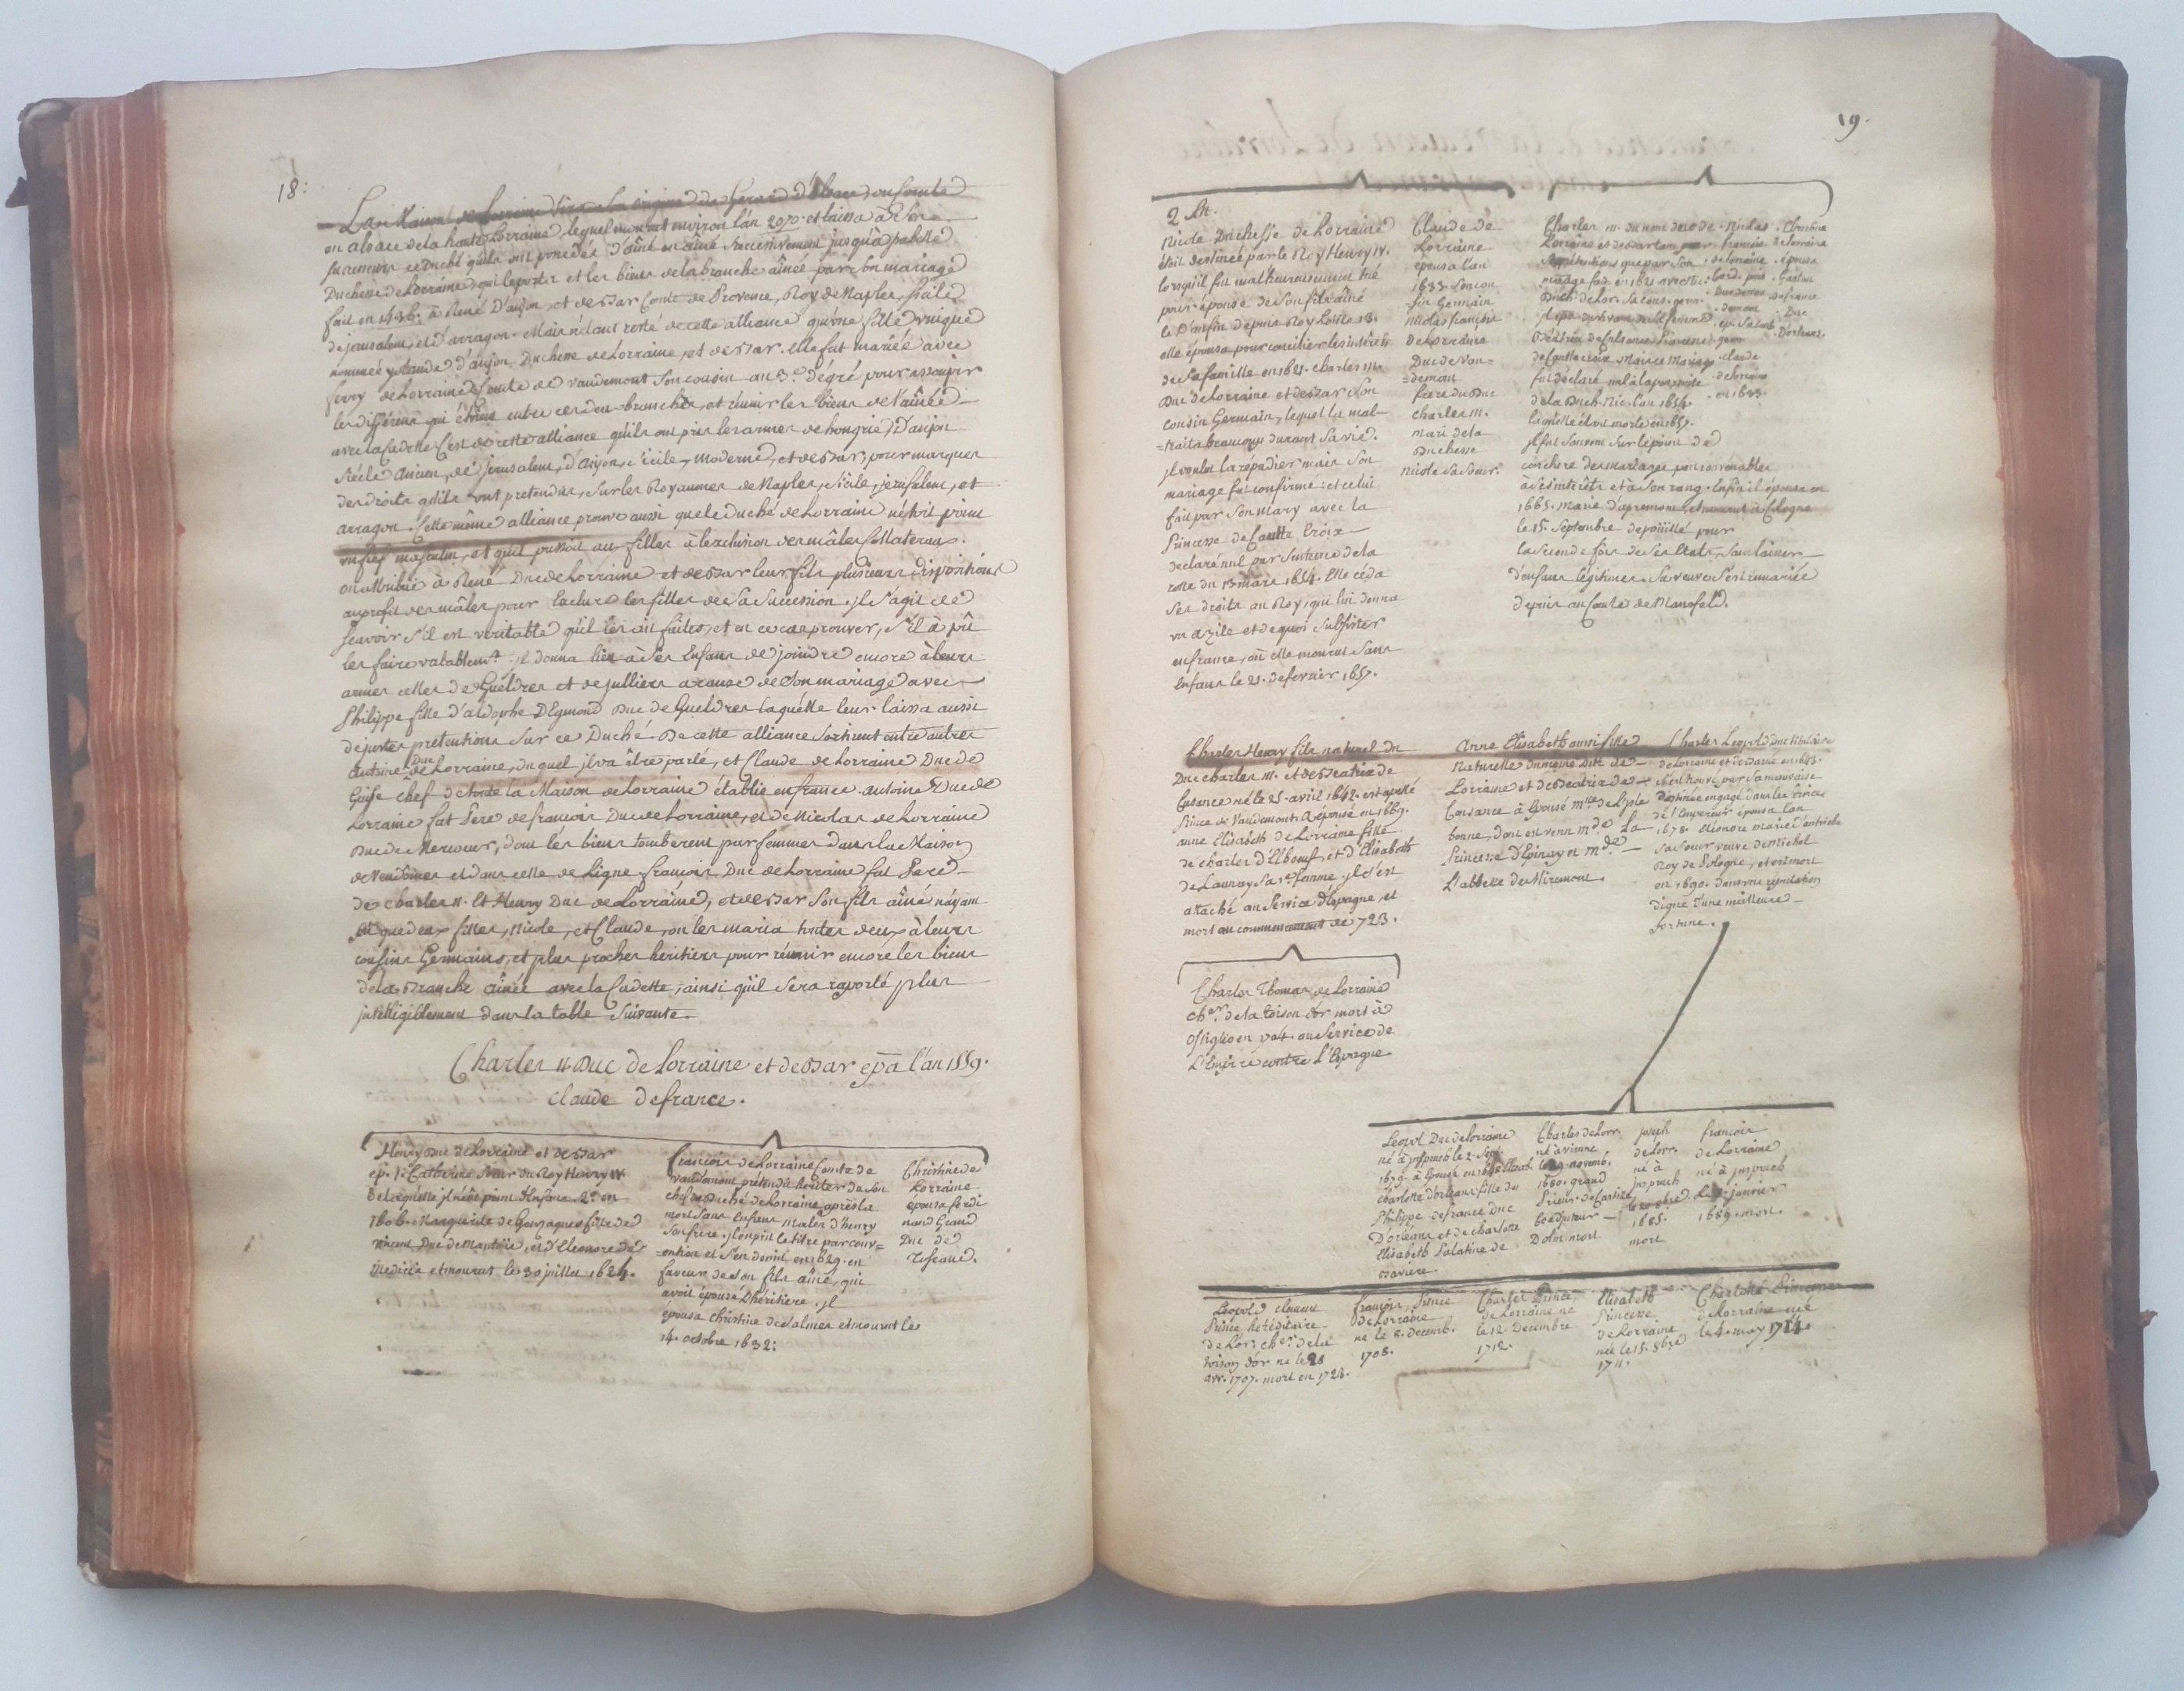 18.
La Maison de Lorraine tire son origine de Gerard d'Alsace ou Comte
en alsace de la haute Lorraine, lequel mourut environ l'an 20 et laissa à
successeurs ce Duché qu'ils ont possédés d'aîné en aîné successivement jusqu'à jsabelle
Duchesse de Lorraine, qui le porta et les biens de la branche aînée par son mariage
fait en à René D'anjou, et de Bar Comte de Provence, Roy de Naples, sicile,
de jerusalem, et d'arragon. Mais n'étant resté de cette alliance qu'une fille unique
nommée yolande d'anjou, Duchesse de Lorraine, et de Bar. elle fut mariée avec
ferry de Lorraine Comte de vaudemont son cousin au 3.e degré pour assoupir
les différens qui étoient entre ces deux branches, et réunir les biens de l'aînée
avec la Cadette. C'est de cette alliance qu'ils ont pris les armes de hongrie, D'anjou
Sicile Ancien, de jerusalem, d'Anjou, Sicile, moderne, et de Bar, pour marquer
des droits qu'ils ont pretendus, sur les Royaumes de Naples, Sicile, jerusalem, et
arragon. Cette même alliance prouve aussi que le Duché de Lorraine n'étoit point
un fief masculin, et qu'il passoit aux filles à l'exclusion des mâles collateraux.
on attribue à René Duc de Lorraine et de Bar leur fils plusieurs dispositions
au profit des mâles pour exclure les filles de sa succession. jl s'agit de
scavoir s'il est veritable qu'il les ait faites, et en ce cas prouver, s'il a pû
les faire valablemt. jl donna lieu à ses Enfans de joindre encore à leurs
armes celles de Gueldres et de julliers a cause de son mariage avec
Philippe fille d'aldophe D'Egmond Duc de Gueldres laquelle leur laissa aussi
de justes pretentions sur ce Duché. De cette alliance sortirent entre autres
Antoine Duc de Lorraine, du quel jl va être parlé, et Claude de Lorraine Duc de
Guise chef de toute la Maison de Lorraine établie en france. antoine Duc de
Lorraine fut Pere de francois Duc de Lorraine, et de Nicolas de Lorraine
Duc de Mercoeur, dont les biens tomberent par femmes dans la Maison
de Vendômes et dans celle de Ligne. francois Duc de Lorraine fut Pere
de charles II. Et Henry Duc de Lorraine, et de Bar son fils aîné n'ayant
que deux filles, Nicole, et Claude, on les maria toutes deux à leurs
cousins Germains, et plus proches heritiers pour réunir encore les biens
de la Branche aînée avec la Cadette, ainsi qu'il sera raporté plus
jntelligiblement dans la table suivante.
Charles II Duc de Lorraine et de Bar epa l'an 1559.
claude de france.
Henry Duc de Lorraine et de Bar
ep. 1.º Catherine Soeur du Roy Henry IV
de laquelle jl n'eut point d'Enfans. 2.º en
1606. Marguerite de Gonzagues fille de
vincent Duc de Mantoüe, et d'Eleonore de
Medicis et mourut le 30 juillet 1624.
francois de Lorraine Comte de
vaudemont prétendit heriter de son
chef du Duché de Lorraine après la
mort sans Enfans males d'henry
son frere. jl en prit le titre par conv=
=ention et s'en demit en 1629. en
faveur de son fils aîné, qui
avoit épousé l'héritiere. jl
epousa christine de Salmes et mourut le
14. octobre 1632:
Christine de
Lorraine
epousa ferdi
nand Grand
Duc de
Toscane.
19.
2 Lit.
Nicole Duchesse de Lorraine
étoit destinée par le Roy Henry IV.
lorsqu'il fut malheureusement tué
pour épouse de son fils aîné
le Daufin depuis Roy Louis 13.
elle épousa pour concilier les intérêts
de sa famille en 1621. charles III.
Duc de Lorraine et de Bar son
cousin Germain, lequel la mal-
=traita beaucoup durant sa vie.
jl voulut la répudier mais son
mariage fut confirmé: et celui
fait par son mary avec la
Princesse de Cante Croix
declaré nul par sentence de la
rotte du 13 mars 1654. Elle céda
ses droits au Roy, qui lui donna
un azile et de quoi subsister
en france, où elle mourut sans
Enfans le 21. de fevrier 1657.
Claude de
Lorraine
épousa l'an
1633. son cou
sin Germain
Nicolas françois
de Lorraine
Duc de Vau-
=demont
frere du Duc
charles III.
mari de la
Duchesse
Nicole sa soeur.
Charles III. du nom Duc de
Lorraine et de Bar tant par
ses prétentions que par son
mariage fait en 1621 avec Nic.
Duch. de Lor. sa cous. germ.
jl epa. du vivant de sa femme
Béatrix de Cusance Princesse
de Cantecroix. Mais ce Mariage
fut déclaré nul à la poursuite
de la Duch. Nic. l'an 1654.
laquelle étant morte en 1657.
jl fut souvent sur le point de
conclure des mariages peu convenables
à ses intérêts et à son rang. Enfin il épousa en
1665. Marie d'apremont, et mourut à Cologne
le 15. Septembre depoüillé pour
la seconde fois de ses Etats, sans laisser
d'enfans légitimes. Sa veuve s'est remariée
depuis au Comte de Mansfeld.
Nicolas
francois
de Lorraine
Card. puis
Duc de Vau
demont
ep. sa cous.
germ
claude
de Lorraine
en 1633.
Christine
de Lorraine
épousa
Gaston
de france
Duc
D'orleans.
Charles Henry fils naturel du
Duc charles III. et de Beatrix de
Cusance né le 25. avril 1642. est apellé
Prince de Vaudemont. a épousé en 1669.
anne Elisabeth de Lorraine fille
de charles d'Elboeuf, et d'Elisabeth
de Launay sa 1.re femme jl s'est
ataché au Service d'Espagne, et
mort au commencement de 723.
Charles Thomas de Lorraine
Cher. de la toison d'or mort à
Ostiglia en 704. au Service de
L'Empire contre L'Espagne
Anne Elisabeth aussi fille
Naturelle du meme Duc de
Lorraine et de Beatrix de
Cusance à épousé Mr. de L'jsle
bonne, dont est venu Md.e La
Princesse d'Epinoy et Md.e
L'abbesse de Miremont.
Charles Leopold Duc titulaire
de Lorraine et de Bar né en 1643.
s'est trouvé par sa mauvaise
destinée engagé dans les interets
de l'Empereur épousa l'an
1678. Eleonore marie d'autriche
sa soeur veuve de Michel
Roy de Pologne, et est mort
en 1690. dans une reputation
digne d'une meilleure
fortune.
Léopol Duc de Lorraine
né à jnspruch le 2. Sept.
1679. à épousé en 1698 Elisab.
charlotte d'orleans fille de
Philippe de france Duc
D'orleans et de charlotte
Elisabeth Palatine de
Baviere.
Charles de Lorr.
né à vienne
le novemb.
1680. grand
Prieur de Castille
Coadjuteur
D'olm. mort
joseph
de Lorr.
né à
jnspruch
le 20 8bre
1685.
mort
francois
de Lorraine
né à jnspruch
le janvier
1689. mort.
Léopold Clement
Prince héréditaire
de Lor. cher. de la
toison d'or né le 25
avr. 1707. mort en 1723.
françois, Prince
de Lorraine
né le 8. decemb.
1708.
Charles Prince
de Lorraine né
le 12. Decembre
1712.
Elisabeth
Princesse
de Lorraine
née le 15. 8bre
1711.
Charlotte Princesse
de Lorraine née
le 4. may 1714.